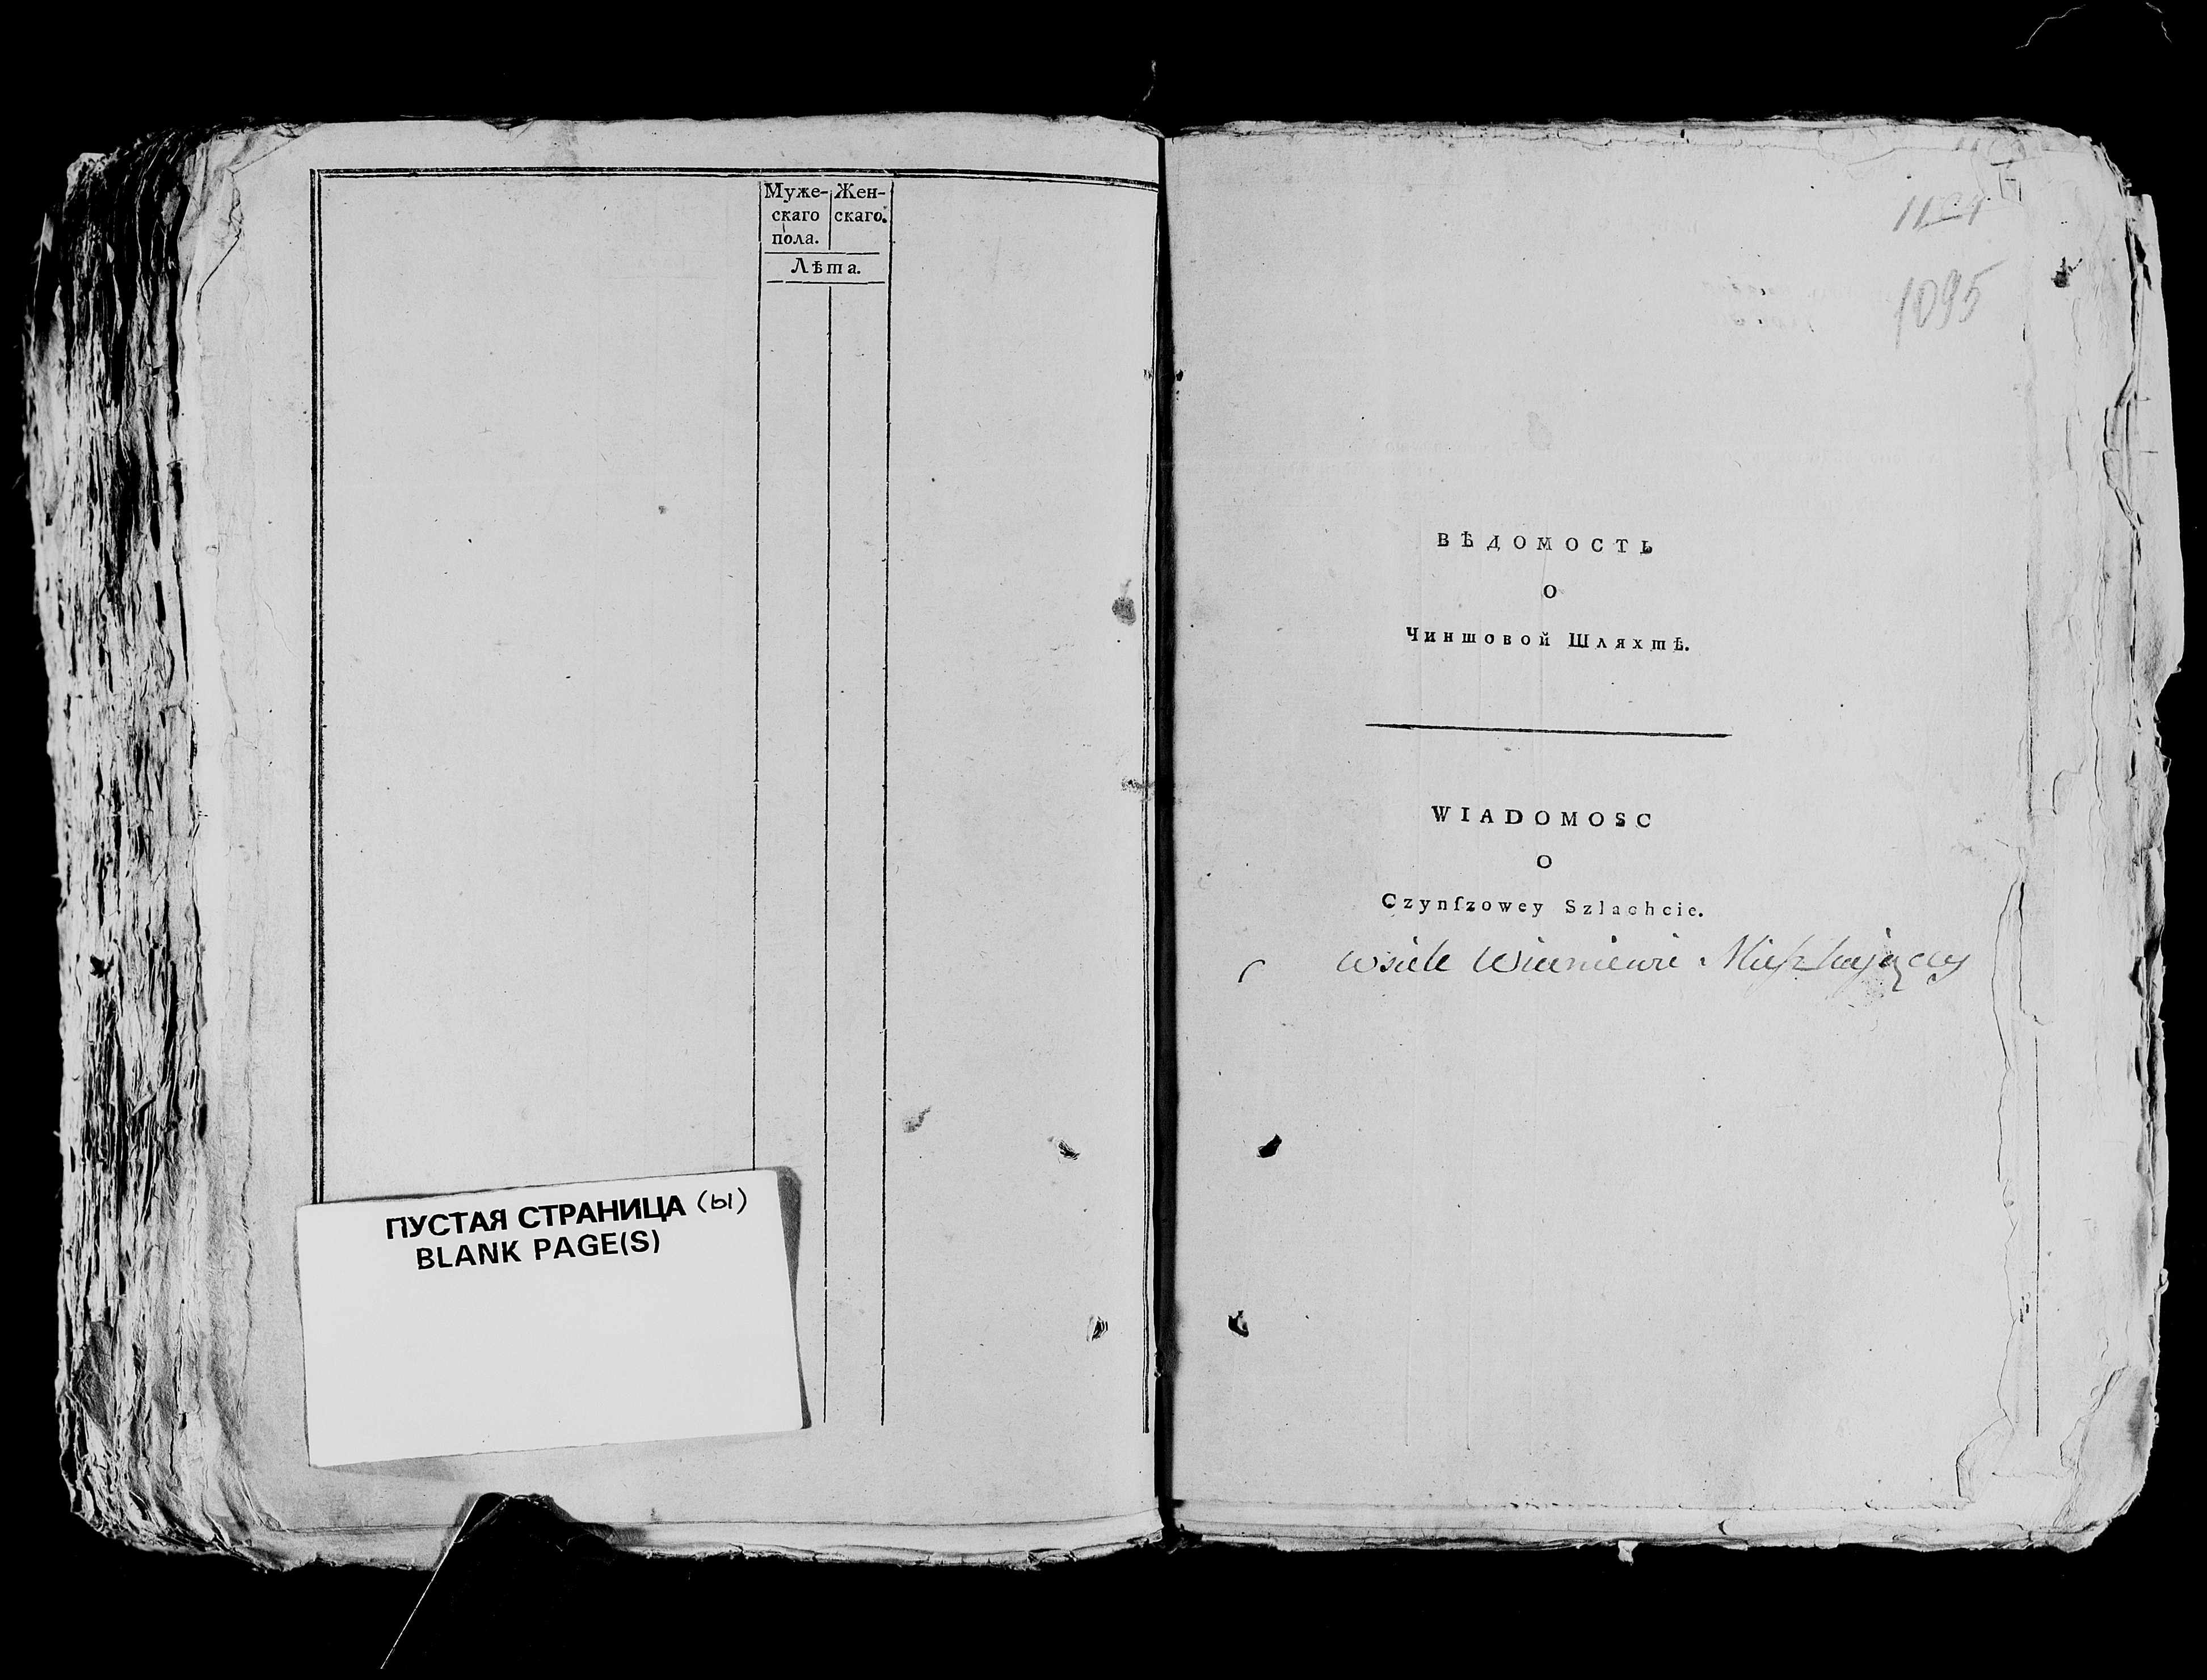 Муже-
скаго
пола.
Жен-
скаго.
Лѣта.
ПУСТАЯ СТРАНИЦА (ы)
BLANK PAGE(S)
1095
ВѢДОМОСТЬ
О
Чиншовой Шляхтѣ.
WIADOMOSC
O
Czynſzowey Szlachcie.
wsiele Mieszkaiący